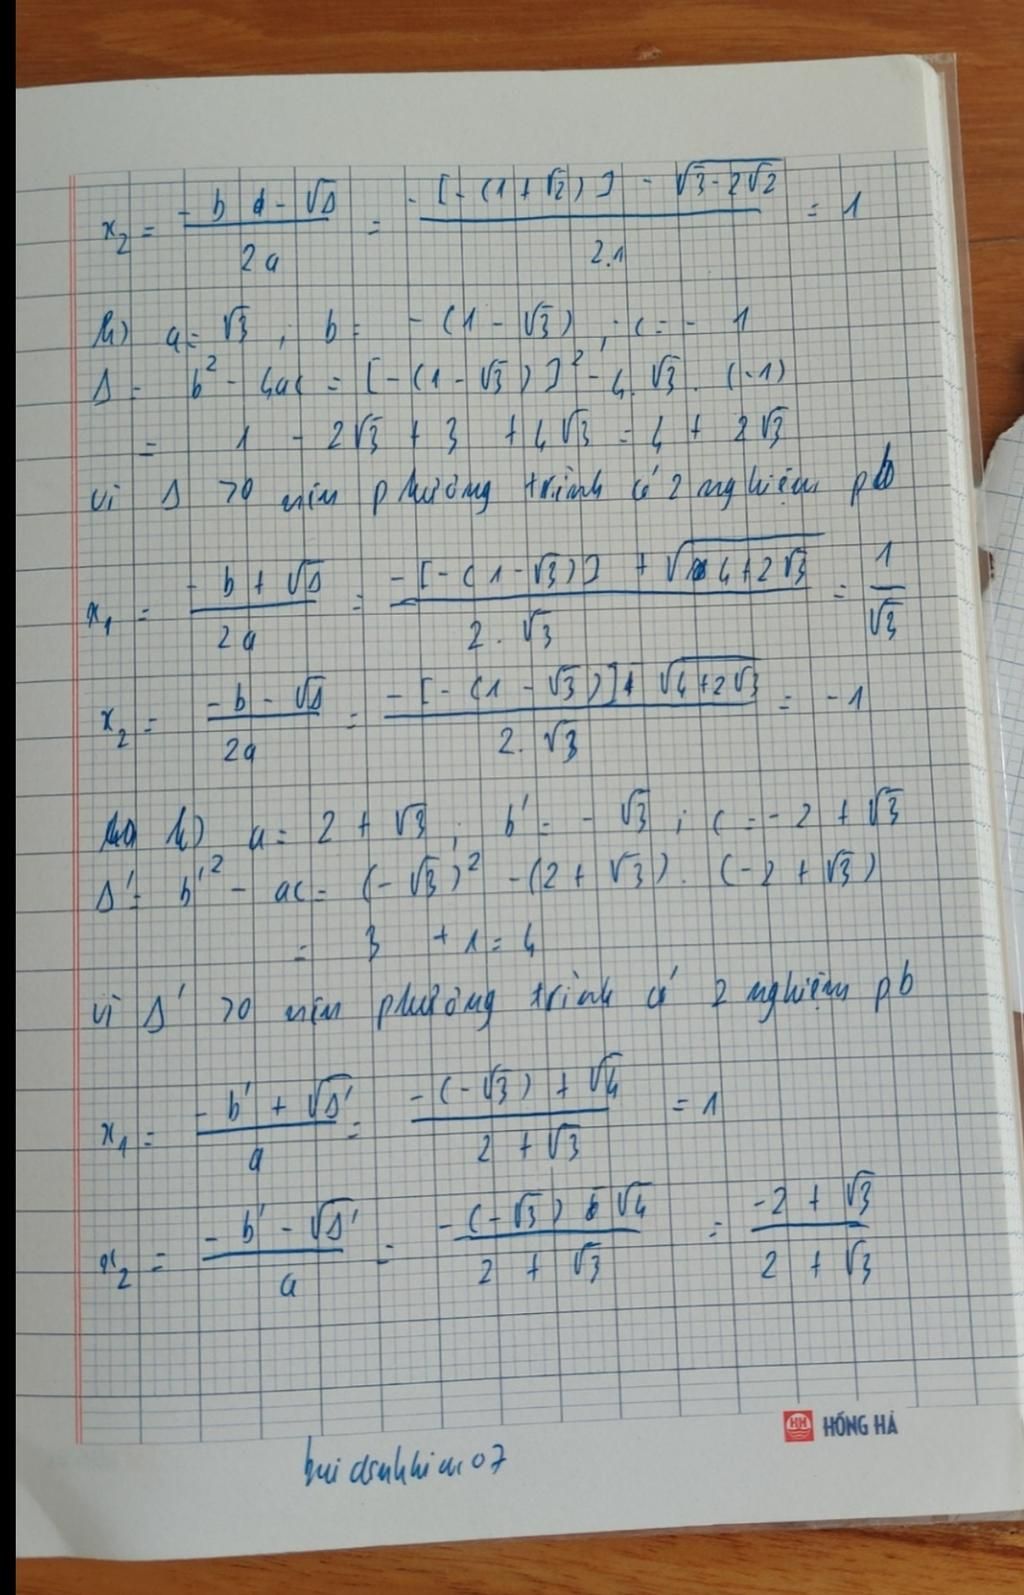 x₂ = (-b - √Δ)/(2a) = (-[-(1+√2)] - √(3-2√2))/(2.1) = 1
h) a = √3 ; b = -(1-√3) ; c = -1
Δ = b² - 4ac = [-(1-√3)]² - 4.√3.(-1)
= 1 - 2√3 + 3 + 4√3 = 4 + 2√3
vì Δ >0 nên phương trình có 2 nghiệm pb
x₁ = (-b + √Δ)/(2a) = (-[-(1-√3)] + √(4+2√3))/(2.√3) = 1/√3
x₂ = (-b - √Δ)/(2a) = (-[-(1-√3)] + √(4+2√3))/(2.√3) = -1
a = 2 + √3 , b' = -√3 ; c = -2 + √3
Δ' = b'² - ac = (-√3)² - (2+√3).(-2+√3)
= 3 + 1 = 4
vì Δ' >0 nên phương trình có 2 nghiệm pb
x₁ = (-b' + √Δ')/a = (-(-√3) + √4)/(2+√3) = 1
x₂ = (-b' - √Δ')/a = (-(-√3) - √4)/(2+√3) = (-2+√3)/(2+√3)
HH HỒNG HÀ